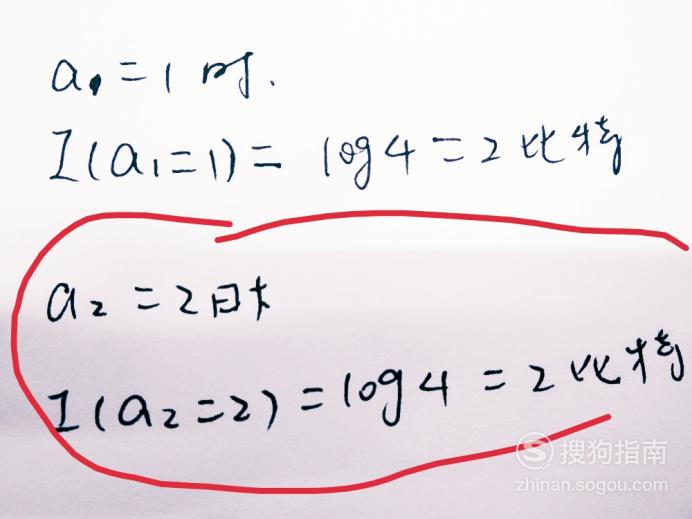 a₁=1时.
I(a₁=1)= log4=2比特
a₂=2时
I(a₂=2)=log4=2比特
搜狗指南
zhinan.sogou.com